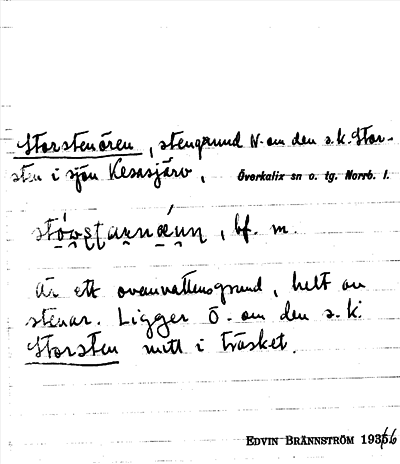 Storstenören, stengrund N. om den s.k. Stor-
sten i sjön Kesasjärv, Överkalix sn o. tg. Norrb. l.
bf. m.
Är ett ovanvattensgrund, helt av
stenar. Ligger Ö. om den s.k.
Storsten mitt i träsket.
EDVIN BRÄNNSTRÖM 1936